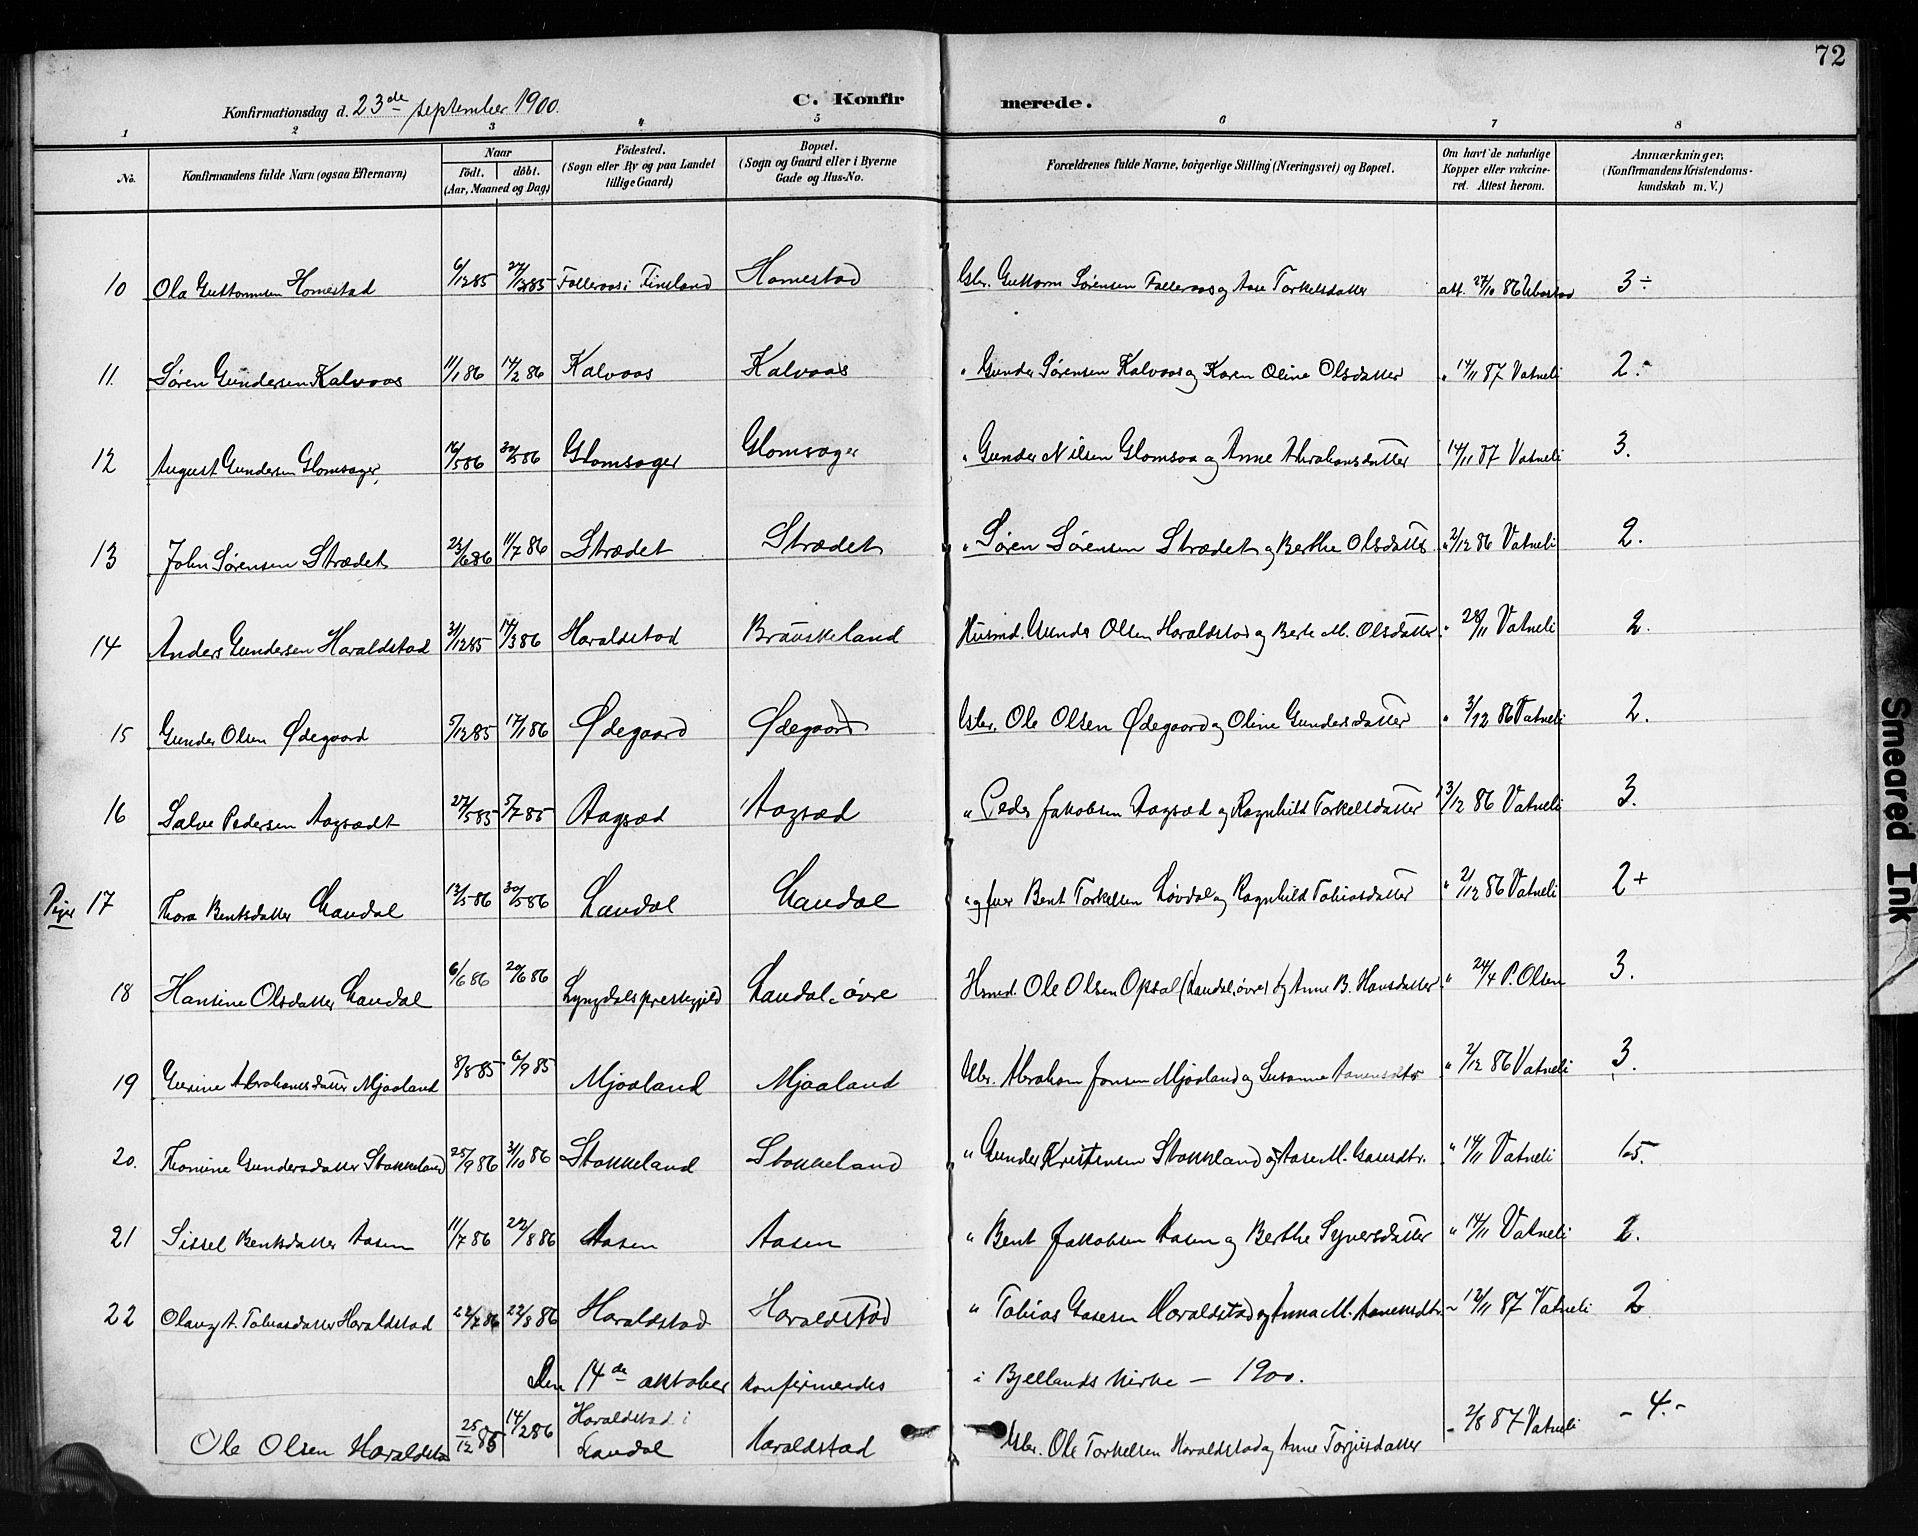 72
Konfirmationsdag d. 23de september 1900.
C. Konfirmerede.
1 2 3 4 5 6 7 8
No.
Konfirmandens fulde Navn (ogsaa Efternavn)
Naar
født. døbt.
(Aar, Maaned og Dag)
Fødested.
(Sogn eller By og paa Landet
tillige Gaard)
Bopæl.
(Sogn og Gaard eller i Byerne
Gade og Hus-No.
Forældrenes fulde Navne, borgerlige Stilling (Næringsvei) og Bopæl.
Om havt de naturlige
Kopper eller vakcine-
ret. Attest herom.
Anmærkninger,
(Konfirmandens Kristendoms-
kundskab m. V.)
10 Ola Guttormsen Homestad 6/12 85 27/12 85 Falleraas i Finsland Homestad Gbr. Guttorm Sørensen Falleraas og Aase Torkelsdatter att. 27/10 86 Ubostad 3÷
11. Søren Gundersen Kalvaas 11/1 86 14/2 86 Kalvaas Kalvaas " Gunder Sørensen Kalvaas og Karen Oline Olsdatter " 14/11 87 Vatneli 2.-
12 August Gundersen Glomsager, 16/5 86 30/5 86 Glomsager Glomsager " Gunder Nilsen Glomsaa og Anne Abrahamsdatter " 14/11 87 Vatneli 3.
13 John Sørensen Strædet 23/6 86 11/7 86 Strædet Strædet " Søren Sørensen Strædet og Berthe Olsdatter " 2/12 86 Vatneli 2.
14 Anders Gundersen Haraldstad 31/12 85 14/3 86 Haraldstad Bruuskeland Husmd. Gunder Olsen Haraldstad og Berte M. Olsdatter " 28/11 Vatneli 2.
15 Gunder Olsen Ødegaard 5/12 85 17/1 86 Ødegaard Ødegaard Gbr. Ole Olsen Ødegaard og Oline Gundersdatter " 3/12 86 Vatneli 2.
16 Salve Pedersen Aagsædt 27/5 85 5/7 85 Aagsæd Aagsæd " Peder Jakobsen Aagsæd og Ragnhild Torkelsdatter 13/12 86 Vatneli 3.
Piger 17 Thora Bentsdatter Laudal 13/5 86 30/5 86 Laudal Laudal Bent Torkelsen Løvdal og Ragnhild Tobiasdatter " 2/12 86 Vatneli 2+
18 Hansine Olsdatter Laudal 6/6 86 20/6 86 Lyngdals prestegjeld Laudal, øvre Hsmd. Ole Olsen Opsal (Laudal, øvre) og Anne B. Hansdatter " 24/4 P. Olsen 3.
19 Gurine Abrahamsdatter Mjaaland 8/8 85 6/9 85 Mjaaland Mjaaland Gbr. Abraham Jonsen Mjaaland og Susanne Aanensdtr " 2/12 86 Vatneli 3.
20. Thomine Gundersdatter Stokkeland 25/9 86 31/10 86 Stokkeland Stokkeland " Gunder Kristensen Stokkeland og Aase M. Gausdtr. " 14/11 Vatneli 1.5.
21 Sissel Bentsdatter Aasen 11/7 86 22/8 86 Aasen Aasen " Bent Jakobsen Aasen og Berthe Syversdatter " 14/11 Vatneli 2.
22 Olaug A. Tobiasdatter Haraldstad 22/7 86 22/8 86 Haraldstad Haraldstad " Tobias Gasesen Haraldstad og Anna M. Aanensdtr " 12/11 87 Vatneli 2
Den 14de oktober konfirmeredes i Bjellands kirke – 1900.
Ole Olsen Haraldstad 25/12 85 14/2 86 Haraldstad i Laudal Haraldstad Gbr. Ole Torkelsen Haraldstad og Anne Torjusdatter " 2/8 87 Vatneli - 4.-
Smeared Ink